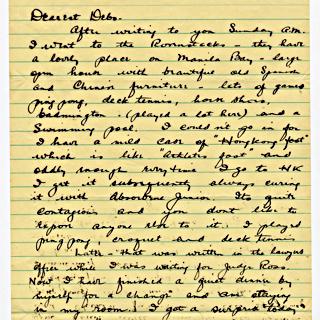 Dearest Debs.
After writing to you Sunday A.M.
I went to the - they have
a lovely place on Manila Bay - large
open house with beautiful old Spanish
and Chinese furniture - lots of games
ping pong, deck tennis, horse shoes,
badmington - (played a lot here) and a
Swimming pool. I could n't go in for
I have a mild case of "Hongkong foot"
which is like "athletes foot" and
oddly enough everytime I go to HK
I get it subsequently always curing
it with Absorbine Junior. Its quite
contagious and you don't like to
expose anyone else to it. I played
ping pong, croquet and deck tennis.
Later - that was written in the lawyers
office while I was waiting for Judge Ross.
Now I have finished a quiet dinner by
myself "for a change" and am staying
in my room. I got a surprise today